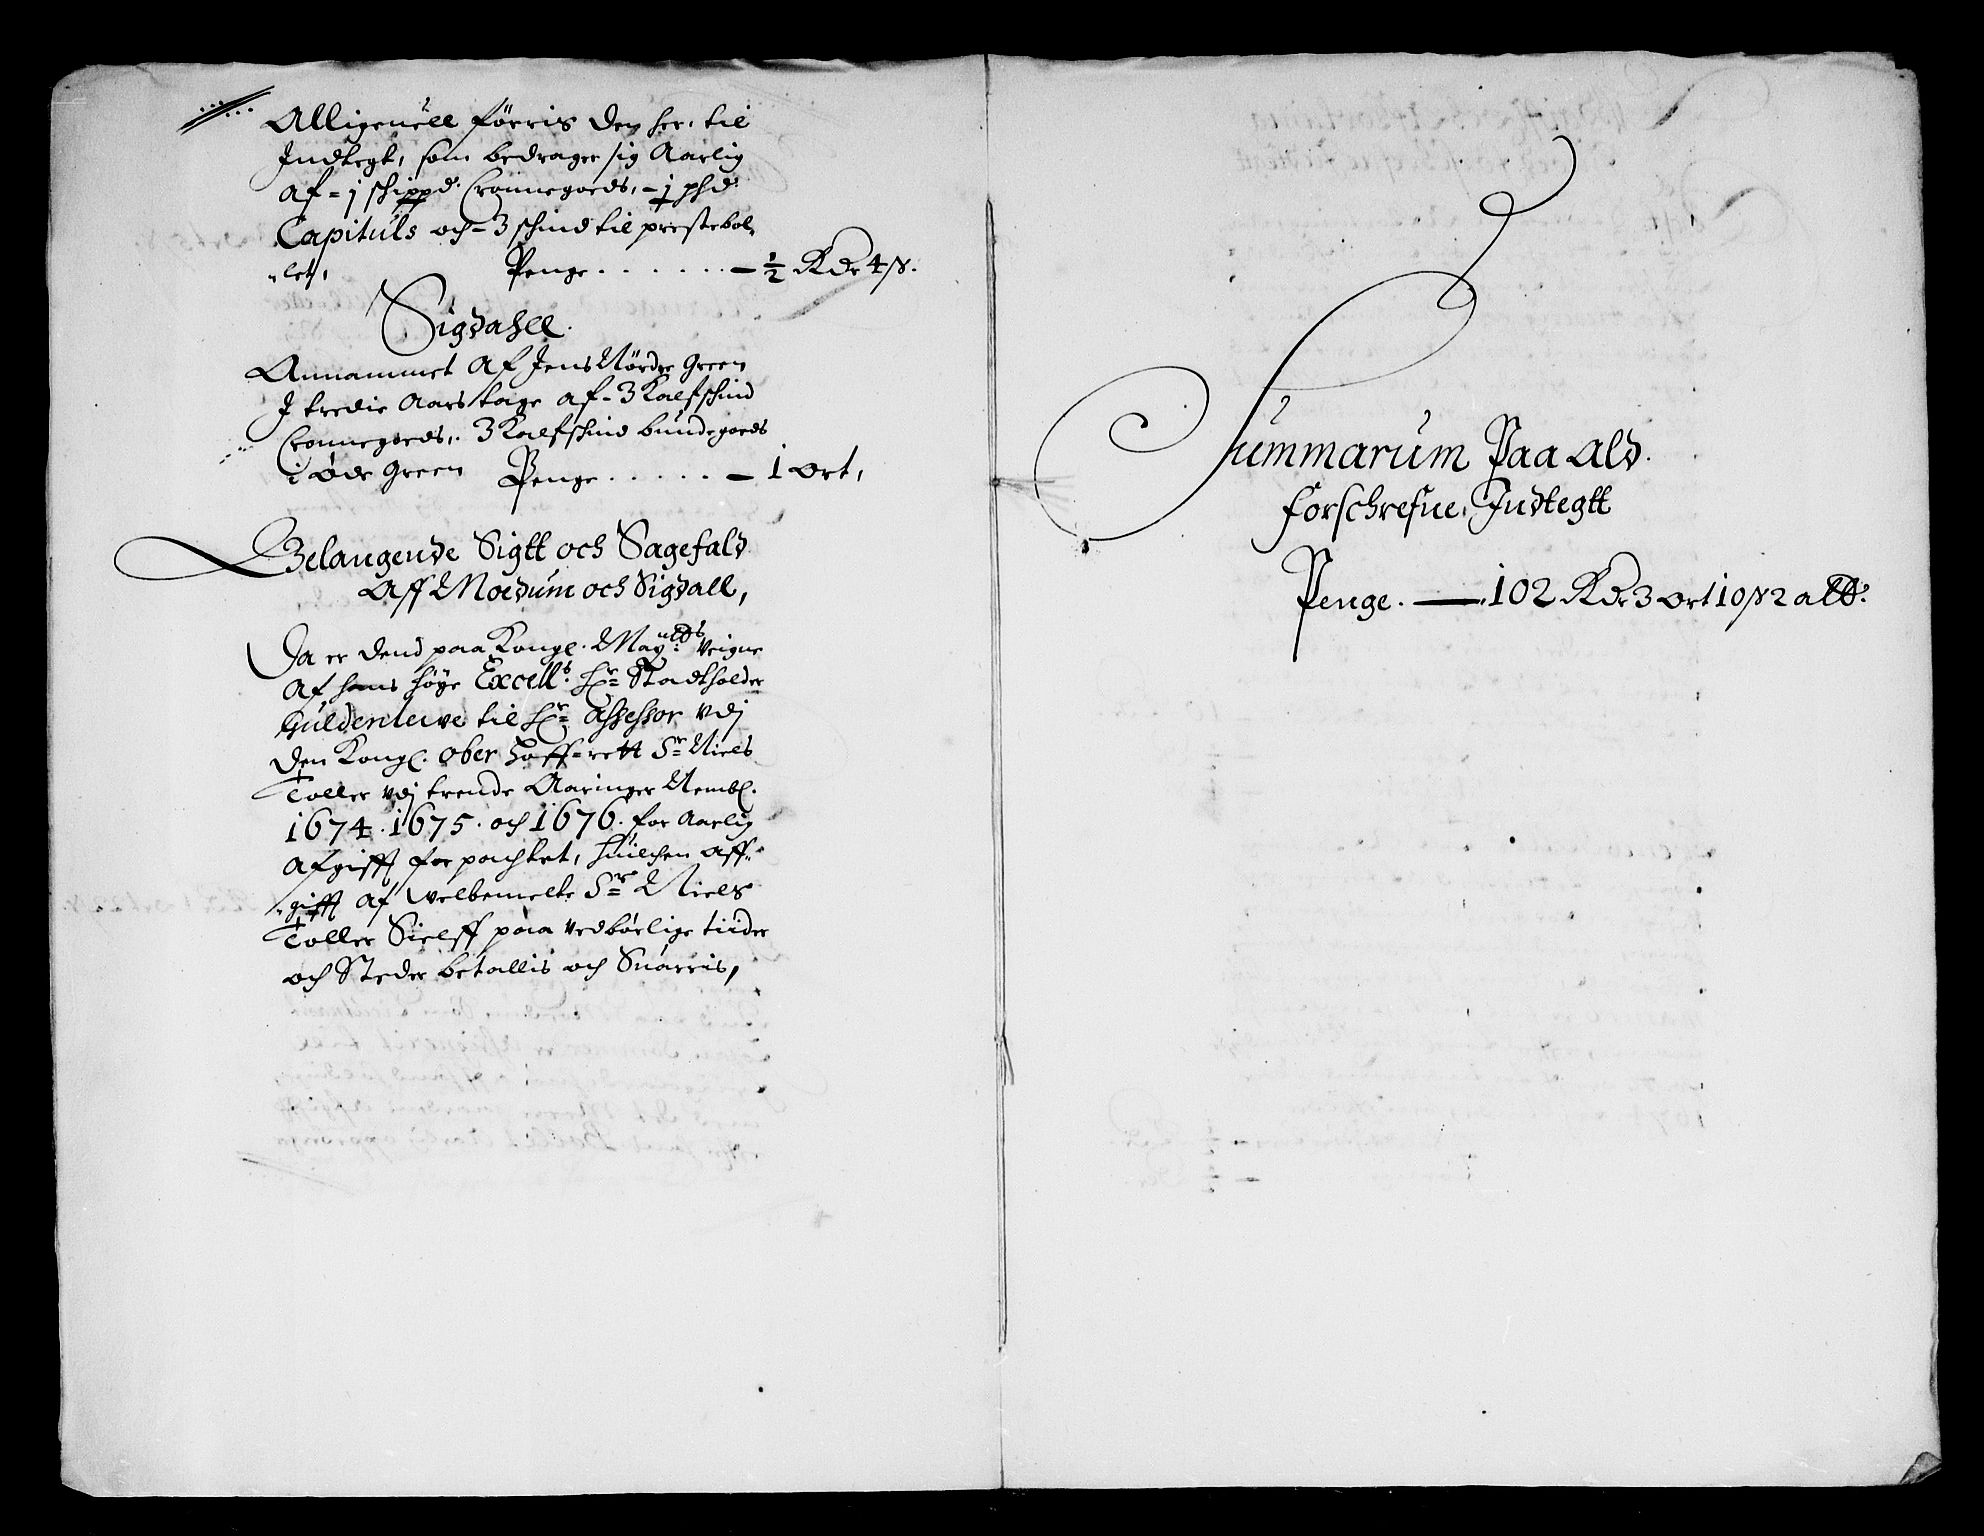 Alligeuell førris den her, til
Indtegt, som bedrager sig Aarlig
af = j schippd. Cronnegoeds, - j phd.
Capituls och - 3 schind til prestebol„
„let, Penge . . . . . . . — ½ Rdr 4 ß.
Sigdahll.
Annammet Af Jens Nørdre Green
J tredie Aars tage af - 3 Kalfschind
Cronnegoeds,. 3 Kalfschind bundegoeds
i øde Green Penge . . . . . . — 1 ort,
Belangende Sigtt och Sagefald
Aff Moedum och Sigdall,
Da er dend paa Kongl. Mayttds Veigne
Af hans høye Excell: Hr Stadtholder
Guldenlewe til Hr Assessor vdj
den Kongl. Ober Hoff=rett Sr Niels
Toller vdj trende Aaringer Nembl.
1674. 1675. och 1676. for Aarlig
Afgifft forpachtet, huilchen aff„
„gifft af welbemelte Sr Niels
Toller Sielff paa vedbørlige tiider
och Steder betallis och Suarris,
Summarum Paa Ald
forschrefne, Indtegtt
Penge. — 102 Rdr 3 ort 10 ß 2 alb: